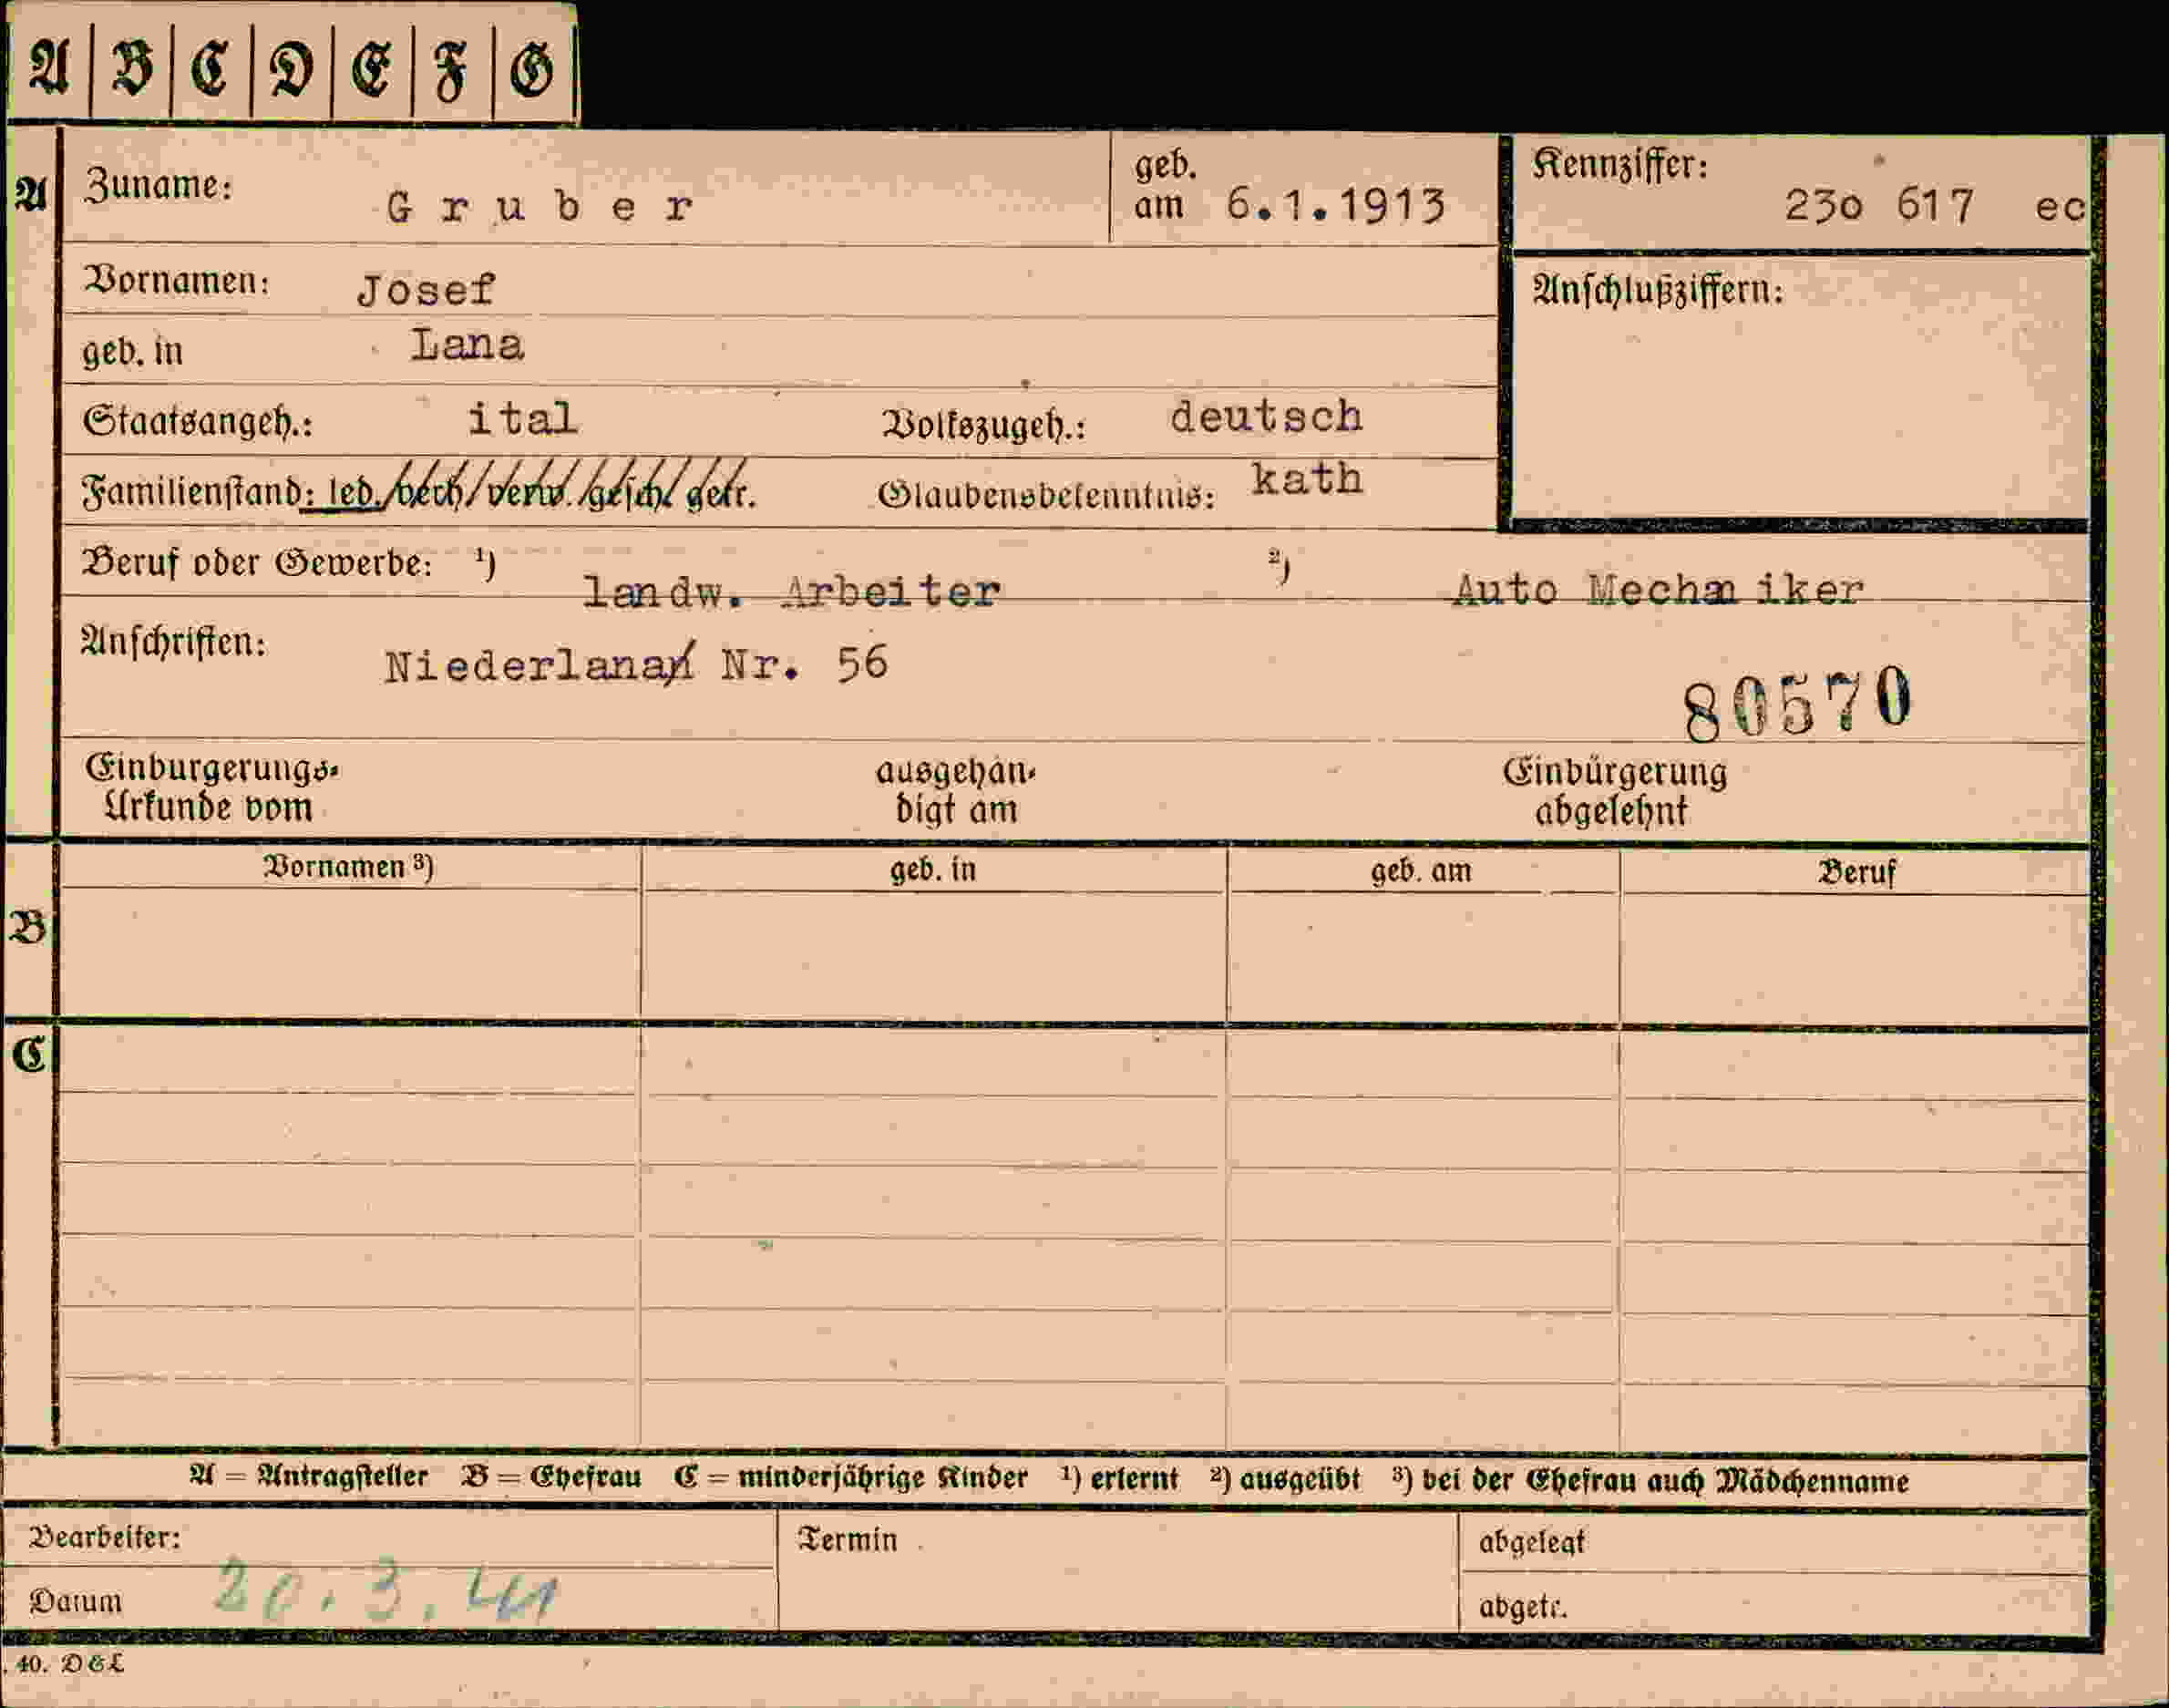 A B C D E F G
A Zuname: Gruber geb. am 6.1.1913 Kennziffer: 23o 617 ec
Vornamen: Josef Anschlußziffern:
geb. in Lana
Staatsangeh.: ital Volkszugeh.: deutsch
Familienstand: led./verh/verw./gesch/getr. Glaubensbekenntnis: kath
Beruf oder Gewerbe: ¹) landw. Arbeiter ²) Auto Mechaniker
Anschriften: Niederlana Nr. 56
80570
Einbürgerungs- ausgehän- Einbürgerung
Urkunde vom digt am abgelehnt
Vornamen ³) geb. in geb. am Beruf
B
C
A = Antragsteller B = Ehefrau C = minderjährige Kinder ¹) erlernt ²) ausgeübt ³) bei der Ehefrau auch Mädchenname
Bearbeiter: Termin abgelegt
Datum 20.3.41 abgetr.
. 40. DGL